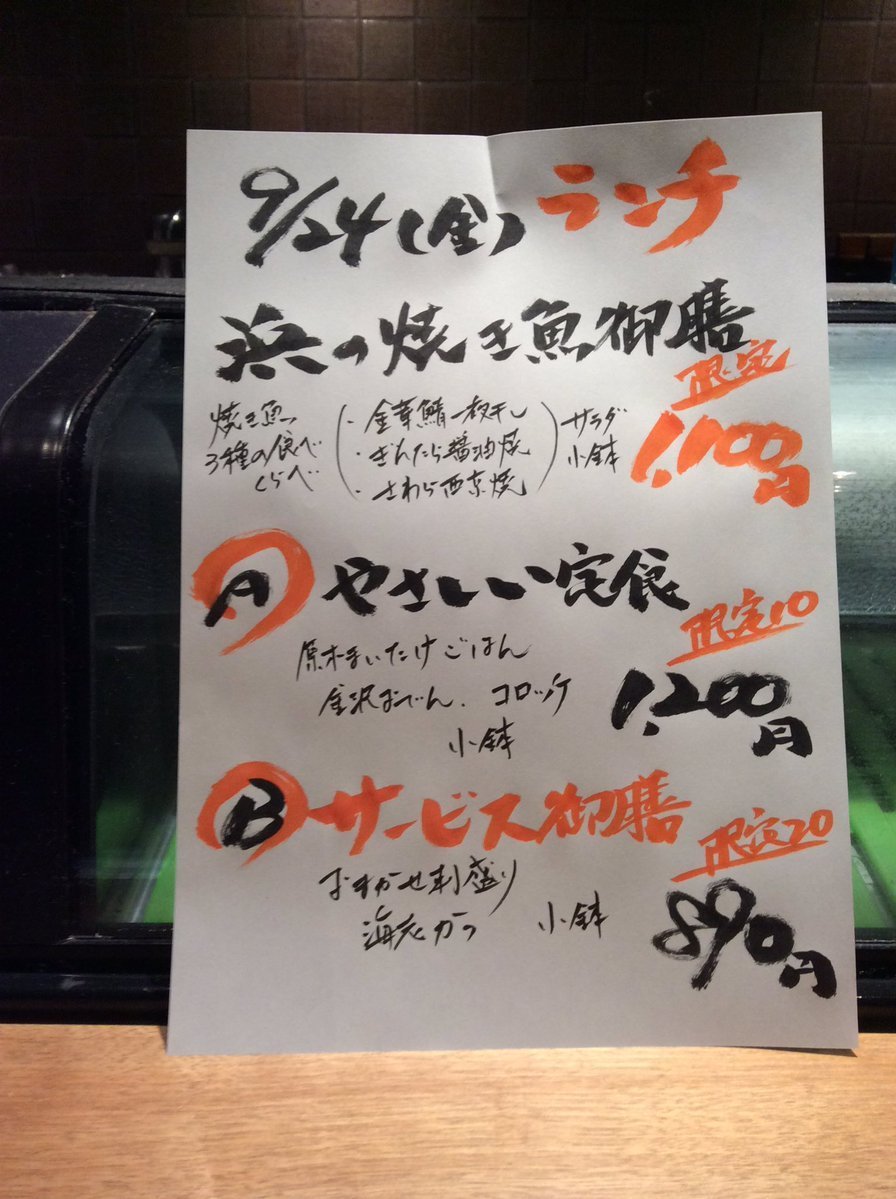 9/24(金) ランチ
浜の焼き魚御膳
限定
1,100円
焼き魚
3種の食べ
くらべ
・金華鯖一夜干し
・ぎんだら醤油焼
・さわら西京焼
サラダ
小鉢
A やさしい定食
限定10
原木まいたけごはん
金沢おでん. コロッケ
小鉢
1,200円
B サービス御膳
限定20
おまかせ刺盛り
海老かつ 小鉢
890円